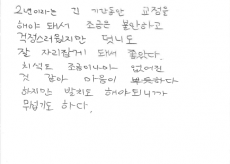 2년이라는 긴 기간동안 교정을
해야 돼서 조금은 불안하고
걱정스러웠지만 덧니도
잘 자리잡게 돼서 좋았다.
치석도 조금이나마 없어진
것 같아 마음이 뿌듯하다
하지만 발치도 해야되니까
무섭기도 하다.